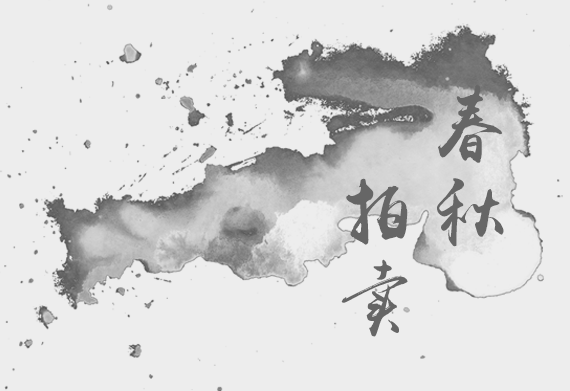 春秋
拍卖